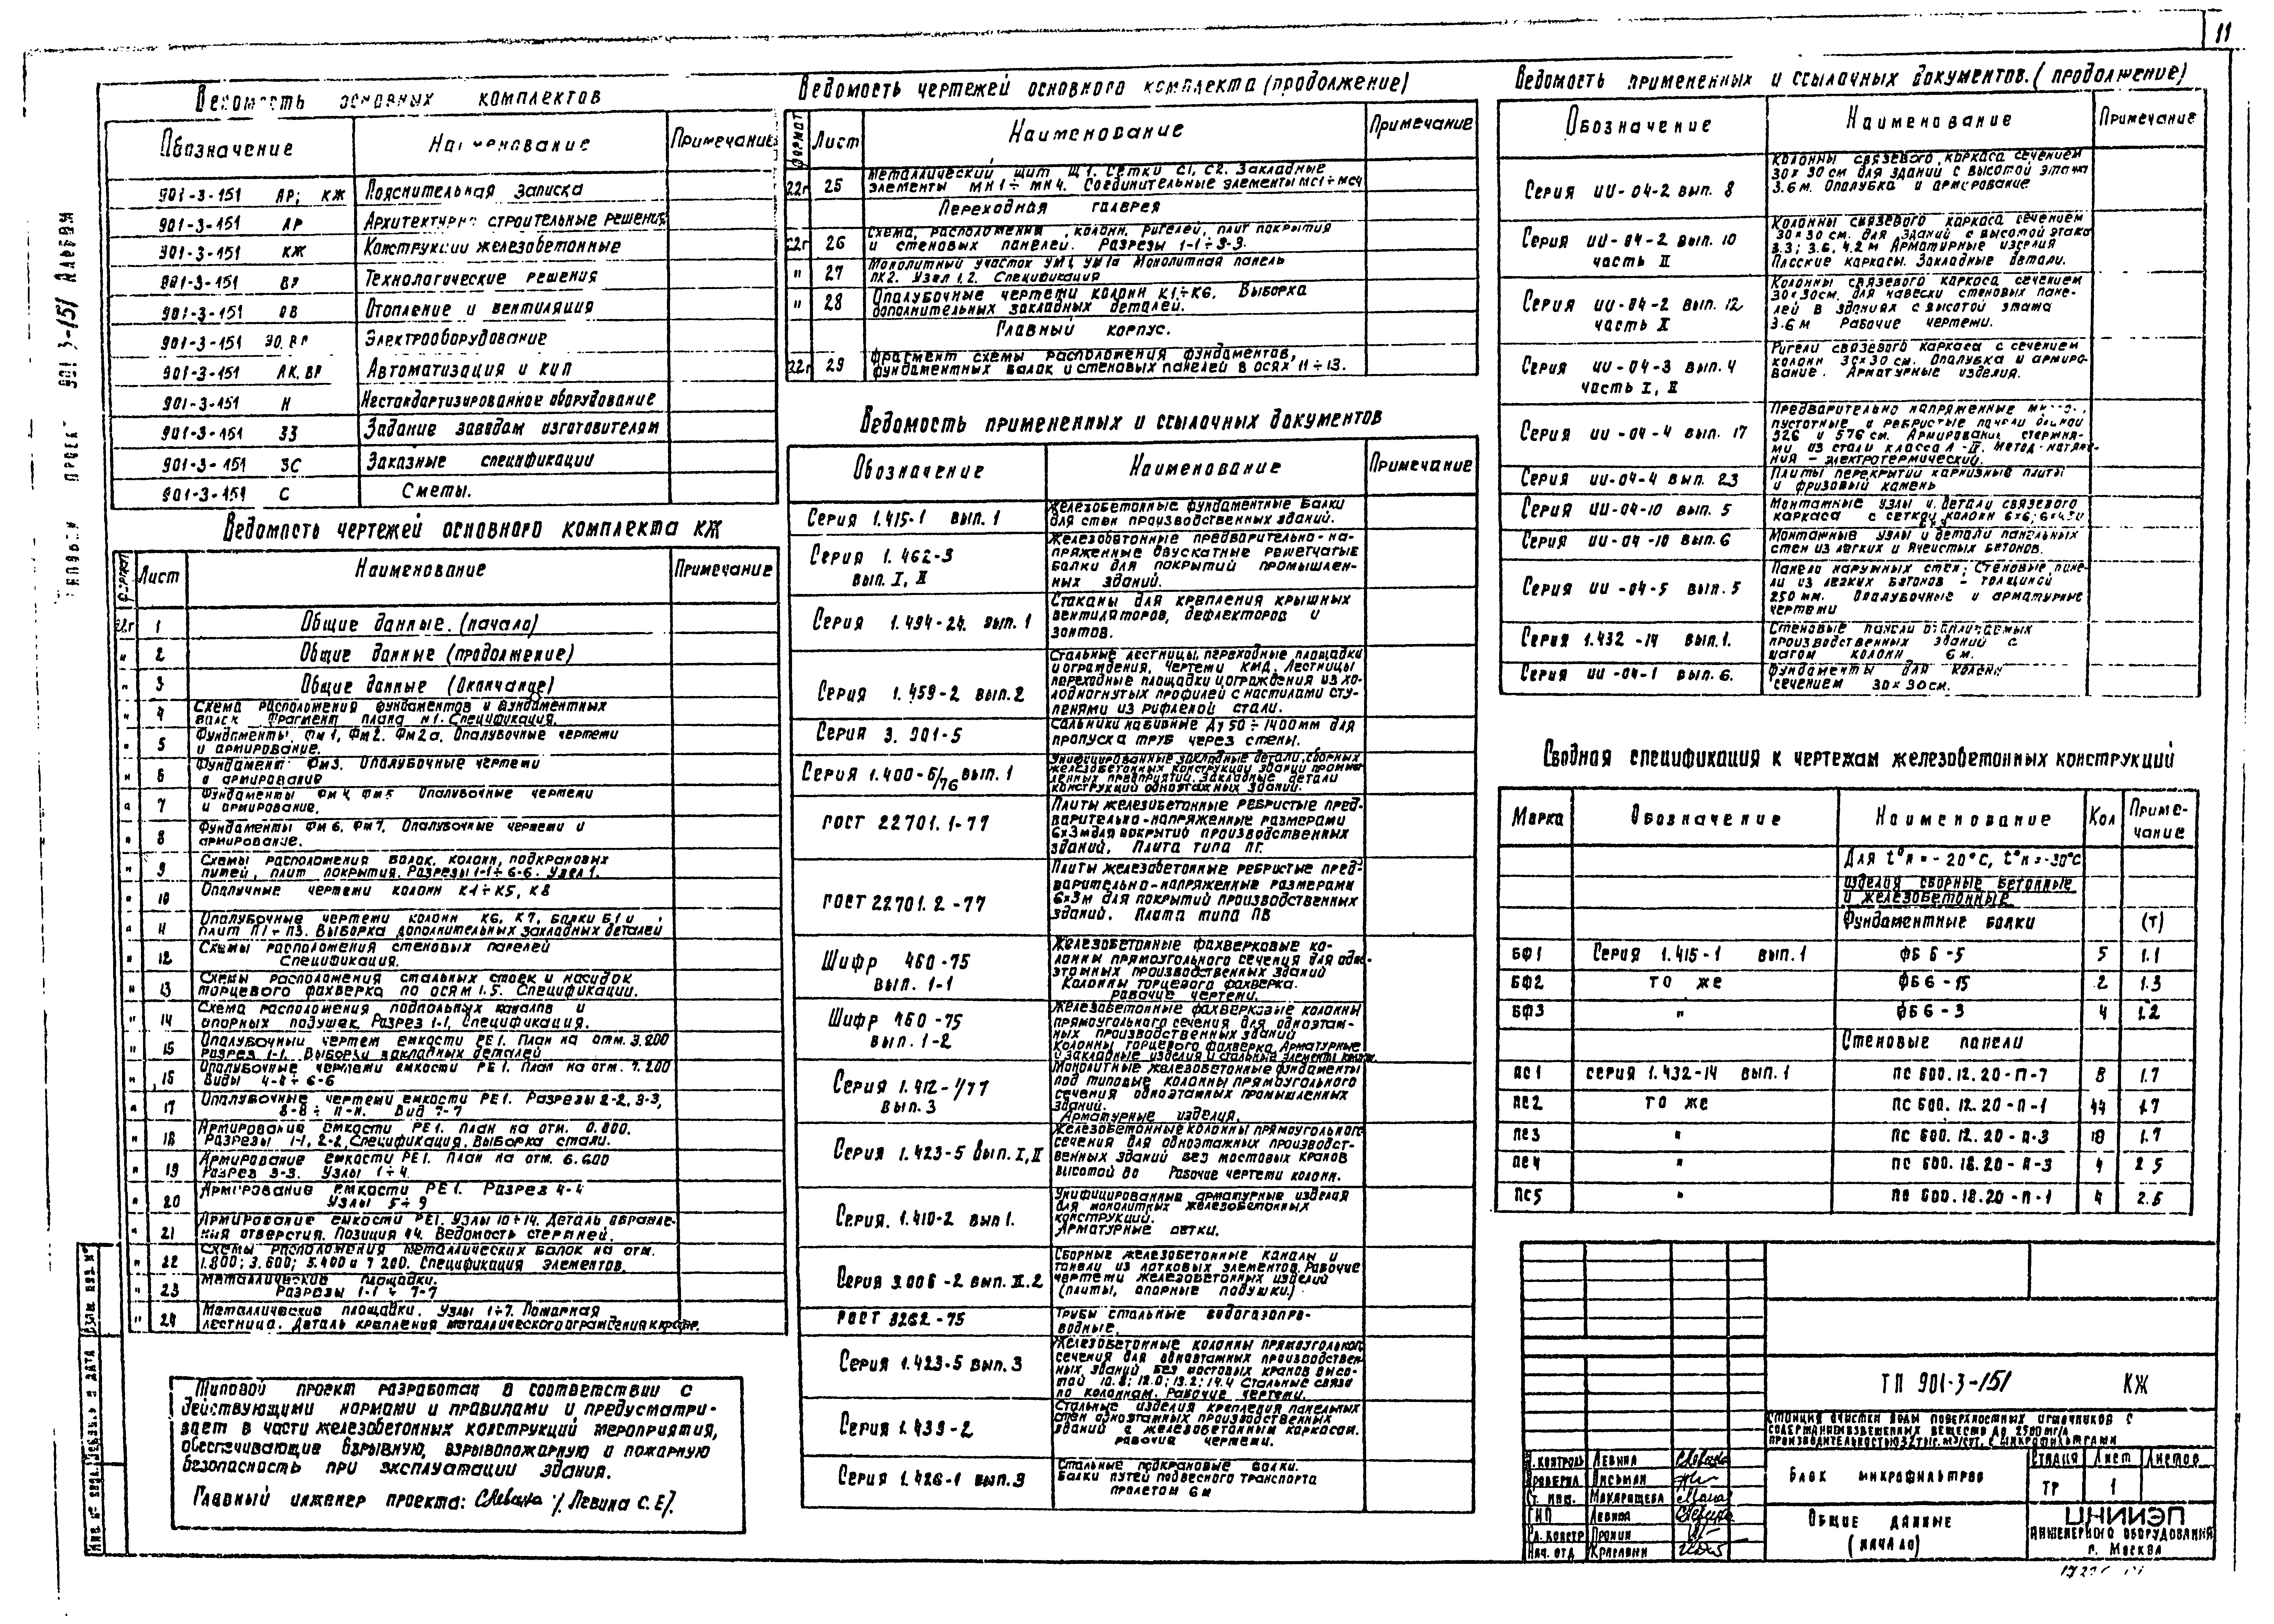 11
Ведомость основных комплектов
Обозначение Наименование Примечание
901-3-151 АР; КЖ Пояснительная записка
901-3-151 АР Архитектурно строительные решения
901-3-151 КЖ Конструкции железобетонные
901-3-151 ВГ Технологические решения
901-3-151 ОВ Отопление и вентиляция
901-3-151 Электрооборудование
901-3-151 АК. ВГ Автоматизация и КИП
901-3-151 Н Нестандартизированное оборудование
901-3-151 ЗЗ Задание заводам изготовителям
901-3-151 ЗС Заказные спецификации
901-3-151 С Сметы.
Ведомость чертежей основного комплекта КЖ
Формат Лист Наименование Примечание
22г 1 Общие данные. (начало)
" 2 Общие данные (продолжение)
" 3 Общие данные (Окончание)
" 4 Схема расположения фундаментов и фундаментных
балок Фрагмент плана №1. Спецификация.
" 5 Фундаменты. Фм1, Фм2. Фм2а. Опалубочные чертежи
и армирование.
" 6 Фундамент Фм3. Опалубочные чертежи
и армирование
" 7 Фундаменты Фм4, Фм5 Опалубочные чертежи
и армирование.
" 8 Фундаменты Фм6, Фм7. Опалубочные чертежи и
армирование.
" 9 Схемы расположения балок, колонн, подкрановых
путей, плит покрытия. Разрезы 1-1÷6-6. Узел 1.
" 10 Опалучные чертежи колонн К1÷К5, К8
" 11 Опалубочные чертежи колонн К6, К7, балки Б1 и
плит П1÷П3. Выборка дополнительных закладных деталей
" 12 Схемы расположения стеновых панелей
Спецификация.
" 13 Схемы расположения стальных стоек и насадок
торцевого фахверка по осям 1.5. Спецификации.
" 14 Схема расположения подпольных каналов и
опорных подушек. Разрез 1-1, Спецификация.
" 15 Опалубочный чертеж емкости РЕ1. План на отм. 3.200
Разрез 1-1. Выборки закладных деталей
" 16 Опалубочные чертежи емкости РЕ1. План на отм. 7.200
Виды 4-4÷6-6
" 17 Опалубочные чертежи емкости РЕ1. Разрезы 2-2, 3-3,
8-8÷11-11. Вид 7-7
" 18 Армирование емкости РЕ1. План на отм. 0.800.
Разрезы 1-1, 2-2, Спецификация. Выборка стали.
" 19 Армирование емкости РЕ1. План на отм. 6.600
Разрез 3-3. Узлы 1÷4.
" 20 Армирование емкости РЕ1. Разрез 4-4
Узлы 5÷9
" 21 Армирование емкости РЕ1. Узлы 10÷14. Деталь обрамле-
ния отверстия. Позиция 44. Ведомость стержней.
" 22 Схемы расположения металлических балок на отм.
1.800; 3.600; 5.400 и 7 200. Спецификация элементов.
" 23 Металлические площадки.
Разрезы 1-1÷7-7
" 24 Металлические площадки. Узлы 1÷7. Пожарная
лестница. Деталь крепления металлического ограждения к кровле.
Типовой проект разработан в соответствии с
действующими нормами и правилами и предусматри-
вает в части железобетонных конструкций мероприятия,
обеспечивающие взрывную, взрывопожарную и пожарную
безопасность при эксплуатации здания.
Главный инженер проекта: /Левина С. Е/.
Ведомость чертежей основного комплекта (продолжение)
Формат Лист Наименование Примечание
22г 25 Металлический щит Щ1. Сетки С1, С2. Закладные
элементы МН1÷МН4. Соединительные элементы МС1÷МС4
Переходная галерея
22г 26 Схема, расположения, колонн, ригелей, плит покрытия
и стеновых панелей. Разрезы 1-1÷3-3.
" 27 Монолитный участок УМ1, УМ1а Монолитная панель
ПК2. Узел 1,2. Спецификация
" 28 Опалубочные чертежи колонн К1÷К6. Выборка
дополнительных закладных деталей.
Главный корпус.
22г 29 Фрагмент схемы расположения фундаментов,
фундаментных балок и стеновых панелей в осях 11÷13.
Ведомость примененных и ссылочных документов
Обозначение Наименование Примечание
Серия 1.415-1 вып. 1 Железобетонные фундаментные балки
для стен производственных зданий.
Серия 1. 462-3 вып. I, II Железобетонные предварительно-на-
пряженные двускатные решетчатые
балки для покрытий промышлен-
ных зданий.
Серия 1. 494-24. вып. 1 Стаканы для крепления крышных
вентиляторов, дефлекторов и
зонтов.
Серия 1. 459-2 вып. 2 Стальные лестницы, переходные площадки
и ограждения. Чертежи КМД. Лестницы
переходные площадки и ограждения из хо-
лодногнутых профилей с настилами сту-
пенями из рифленой стали.
Серия 3. 901-5 Сальники набивные Ду 50÷1400мм для
пропуска труб через стены.
Серия 1.400-6/76 вып. 1 Унифицированные закладные детали сборных
железобетонных конструкции здании промыш
ленных предприятий. Закладные детали
конструкций одноэтажных зданий.
ГОСТ 22701. 1-77 Плиты железобетонные ребристые пред-
варительно-напряженные размерами
6х3м для покрытий производственных
зданий. Плита типа ПГ.
ГОСТ 22701. 2-77 Плиты железобетонные ребристые пред-
варительно-напряженные размерами
6х3м для покрытий производственных
зданий. Плата типа ПВ
Шифр 460-75 вып. 1-1 Железобетонные фахверковые ко-
лонны прямоугольного сечения для одно-
этажных производственных зданий
Колонны торцевого фахверка.
Рабочие чертежи.
Шифр 460-75 вып. 1-2 Железобетонные фахверковые колонны
прямоугольного сечения для одноэтаж-
ных производственных зданий
Колонны торцевого фахверка Арматурные
и закладные изделия и стальные элементы
Серия 1.412-1/77 вып. 3 Монолитные железобетонные фундаменты
под типовые колонны прямоугольного
сечения одноэтажных промышленных
зданий.
Арматурные изделия.
Серия 1.423-5 вып. I, II Железобетонные колонны прямоугольного
сечения для одноэтажных производст-
венных зданий без мостовых кранов
высотой до Рабочие чертежи колонн.
Серия. 1.410-2 вып 1. Унифицированные арматурные изделия
для монолитных железобетонных
конструкций.
Арматурные сетки.
Серия 3.006-2 вып. II.2 Сборные железобетонные каналы и
тонели из лотковых элементов. Рабочие
чертежи железобетонных изделий
(плиты, опорные подушки.)
ГОСТ 3262-75 Трубы стальные водогазопро-
водные.
Серия 1.423-5 вып. 3 Железобетонные колонны прямоугольного
сечения для одноэтажных производствен-
ных зданий без мостовых кранов высо-
той 10.8; 12.0; 13.2; 14.4 Стальные связи
по колоннам. Рабочие чертежи.
Серия 1.439-2 Стальные изделия крепления панельных
стен одноэтажных производственных
зданий с железобетонным каркасом.
рабочие чертежи.
Серия 1.426-1 вып. 3 Стальные подкрановые балки.
Балки путей подвесного транспорта
пролетом 6м
Ведомость примененных и ссылочных документов. (продолжение)
Обозначение Наименование Примечание
Серия ИИ-04-2 вып. 8 Колонны связевого каркаса сечением
30×30 см для зданий с высотой этажа
3.6 м. Опалубка и армирование
Серия ИИ-04-2 вып. 10 часть II Колонны связевого каркаса сечением
30×30 см. для зданий с высотой этажа
3.3; 3.6, 4.2 м Арматурные изделия
Плоские каркасы. Закладные детали.
Серия ИИ-04-2 вып. 12 часть II Колонны связевого каркаса сечением
30×30см. для навески стеновых пане-
лей в зданиях с высотой этажа
3.6 м Рабочие чертежи.
Серия ИИ-04-3 вып. 4 часть I, II Ригели связевого каркаса с сечением
колонн 30×30 см. Опалубка и армиро-
вание. Арматурные изделия.
Серия ИИ-04-4 вып. 17 Предварительно напряженные
пустотные и ребристые панели длиной
526 и 576 см. Армирование стержня-
ми из стали класса А-IV. Метод натяже-
ния - электротермический.
Серия ИИ-04-4 вып. 23 Плиты перекрытий карнизные плиты
и фризовый камень
Серия ИИ-04-10 вып. 5 Монтажные узлы и детали связевого
каркаса с сеткой колонн 6×6;
Серия ИИ-04-10 вып. 6 Монтажные узлы и детали панельных
стен из легких и ячеистых бетонов.
Серия ИИ-04-5 вып. 5 Панели наружных стен; Стеновые пане-
ли из легких бетонов - толщиной
250 мм. Опалубочные и арматурные
чертежи
Серия 1.432-14 вып. 1. Стеновые панели отапливаемых
производственных зданий с
шагом колонн 6 м.
Серия ИИ-04-1 вып. 6. Фундаменты для колонн
сечением 30×30см.
Сводная спецификация к чертежам железобетонных конструкций
Марка Обозначение Наименование Кол Приме-
чание
Для t°н = -20°С, t°н = -30°С
изделия сборные бетонные
и железобетонные
Фундаментные балки (т)
БФ1 Серия 1.415-1 вып. 1 ФБ 6-5 5 1.1
БФ2 то же ФБ6-15 2 1.3
БФ3 " ФБ6-3 4 1.2
Стеновые панели
ПС1 серия 1.432-14 вып. 1 ПС 600. 12. 20-П-7 8 1.7
ПС2 то же ПС 600. 12. 20-П-1 44 1.7
ПС3 " ПС 600. 12. 20-П-3 18 1.7
ПС4 " ПС 600. 18. 20-П-3 4 2.5
ПС5 " ПС 600. 18. 20-П-1 4 2.5
ТП 901-3-151 КЖ
Станция очистки воды поверхностных источников с
содержанием взвешенных веществ до 2500 мг/л
производительностью 32 тыс. м3/сут. с микрофильтрами
Н.контроль Левина
Проверил Письман
Ст. инж. Макарищева
ГИП Левина
Гл. констр Пронин
Нач. отд Красавин
Блок микрофильтров
Стадия Лист Листов
ТР 1
Общие данные
(начало)
ЦНИИЭП
инженерного оборудования
г. Москва